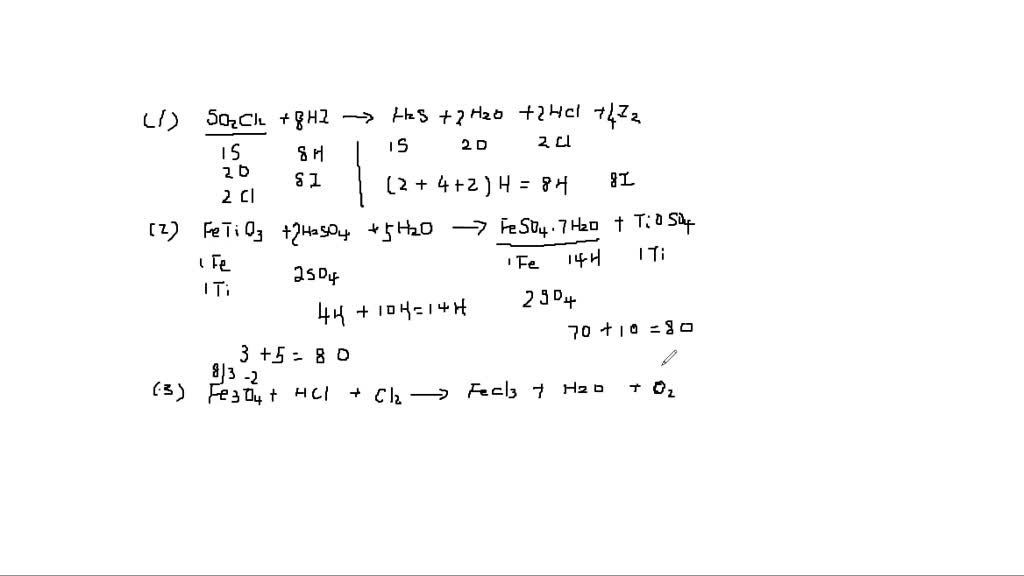 (1) SO2Cl2 + 8HI → H2S + 2H2O + 2HCl + 4I2
1S 8H 1S 2O 2Cl
2O 8I (2 + 4 + 2) H = 8H 8I
2Cl
(2) FeTiO3 + 2H2SO4 + 5H2O → FeSO4.7H2O + TiOSO4
1Fe 2SO4 1Fe 14H 1Ti
1Ti
4H + 10H = 14H 2SO4
7O + 1O = 8O
3 + 5 = 8O
8/3 -2
(3) Fe3O4 + HCl + Cl2 → FeCl3 + H2O + O2